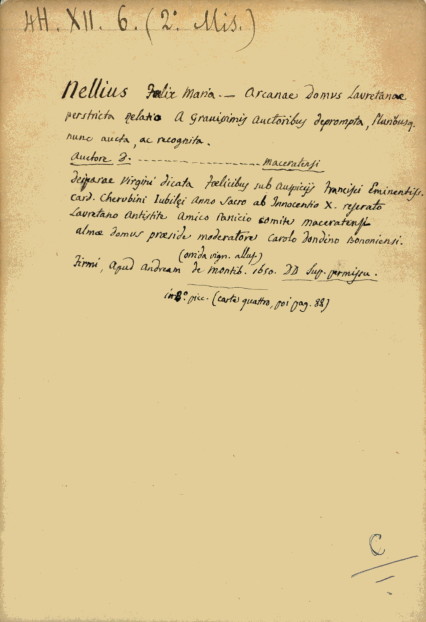 4H. XII. 6. (2º Mis.)
Nellius Felix Maria. — Arcanae Domus Lauretanae
perstricta relatio A Gravissimis Auctoribus deprompta, Pluribusq.
nunc aucta, ac recognita.
Auctore D. ---------------- maceratensi
Deiparae Virgini dicata Fœlicibus sub Auspicijs Principis Eminentiss.
Card. Cherubini Iubilei Anno Sacro ab Innocentio X. reserato
Lauretano Antistite Amico Panicio comite maceratensi
almæ domus præside moderatore Carolo Dondino Bononiensi.
(orrida vign. allus.)
Firmi, Apud Andream de Montib. 1650. DD Sup. permissu.
in 8º. picc. (carte quattro, poi pag. 88)
C